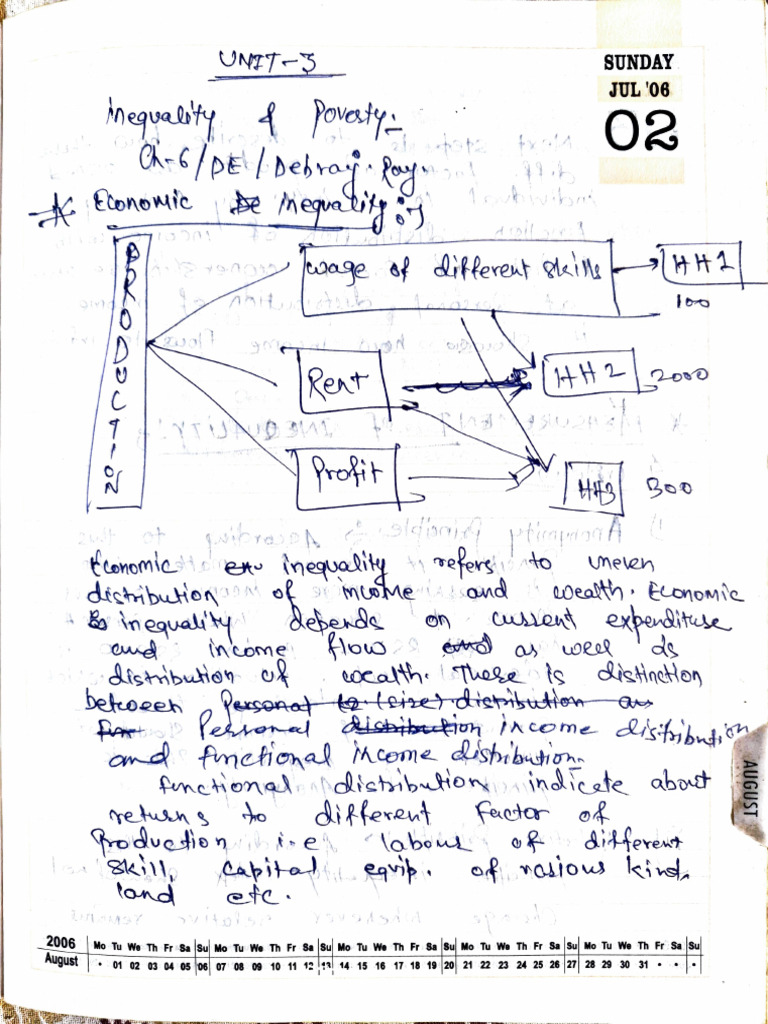 UNIT-3
SUNDAY
JUL '06
02
Inequality & Poverty:-
Ch-6/DE/Debraj. Ray.
* Economic De Inequality :-
PRODUCTION
wage of different skills
HH1
100
Rent
HH2
2000
Profit
HH3
300
Economic en inequality refers to uneven
distribution of income and wealth. Economic
inequality depends on current expenditure
and income flow and as well as
distribution of wealth. There is distinction
between Personal (size) distribution as
fun Personal distribution income distribution
and functional income distribution.
functional distribution indicate about
returns to different factor of
Production i.e labour of different
skill, capital equip. of various kind,
land etc.
AUGUST
2006 Mo Tu We Th Fr Sa Su Mo Tu We Th Fr Sa Su Mo Tu We Th Fr Sa Su Mo Tu We Th Fr Sa Su Mo Tu We Th Fr Sa Su
August • 01 02 03 04 05 06 07 08 09 10 11 12 13 14 15 16 17 18 19 20 21 22 23 24 25 26 27 28 29 30 31 • • •